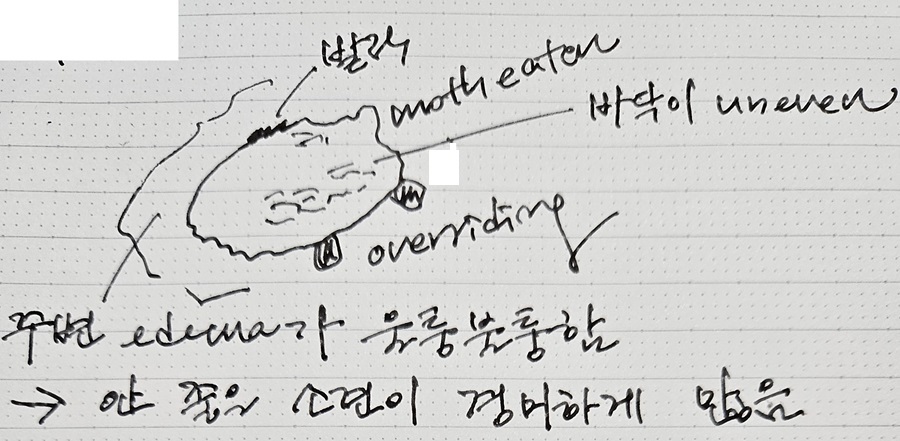 발적
moth eaten
바닥이 uneven
overriding
주변 edema가 울퉁불퉁함
→ 안 좋은 소견이 경미하게 많음